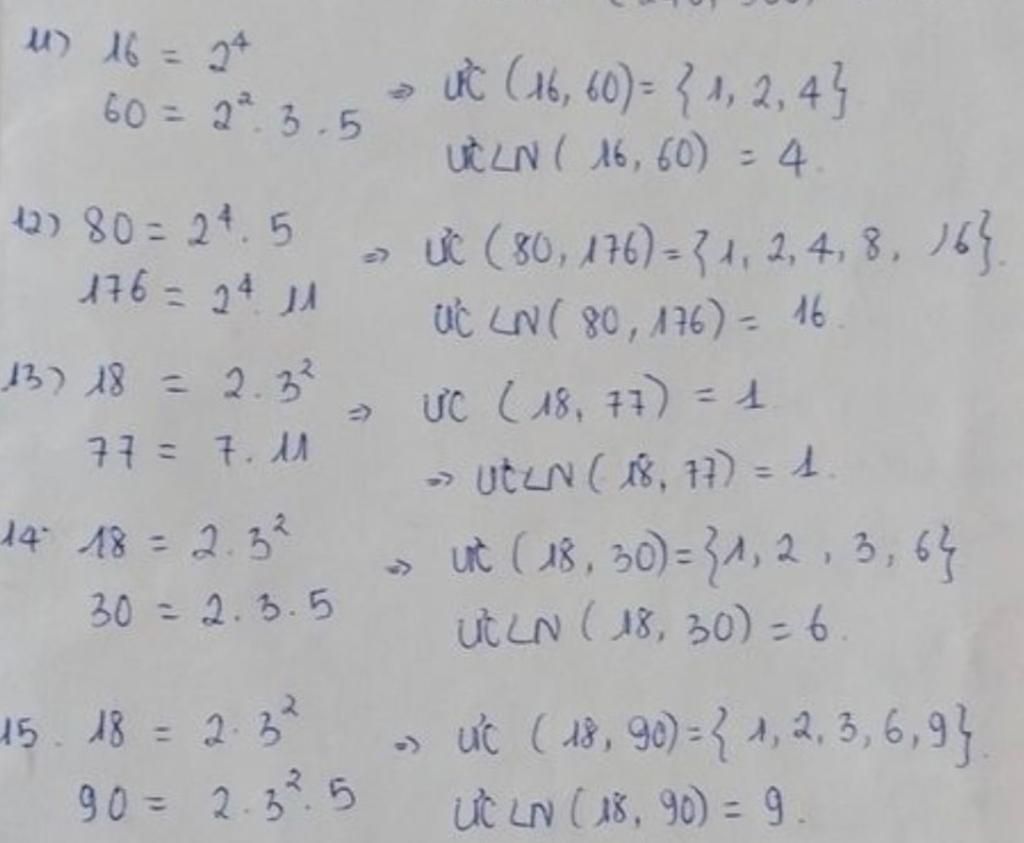 11) 16 = 2⁴
60 = 2². 3 . 5
=> ƯC (16, 60) = {1, 2, 4}
ƯCLN ( 16, 60) = 4.
12) 80 = 2⁴. 5
176 = 2⁴. 11
=> ƯC (80, 176) = {1, 2, 4, 8, 16}.
ƯCLN ( 80, 176) = 16.
13) 18 = 2. 3²
77 = 7. 11
=> ƯC ( 18, 77) = 1
=> ƯCLN ( 18, 77) = 1.
14. 18 = 2. 3²
30 = 2. 3. 5
=> ƯC ( 18, 30) = {1, 2 , 3, 6}
ƯCLN ( 18, 30) = 6.
15. 18 = 2. 3²
90 = 2. 3². 5
=> ƯC ( 18, 90) = { 1, 2, 3, 6, 9}.
ƯCLN ( 18, 90) = 9.